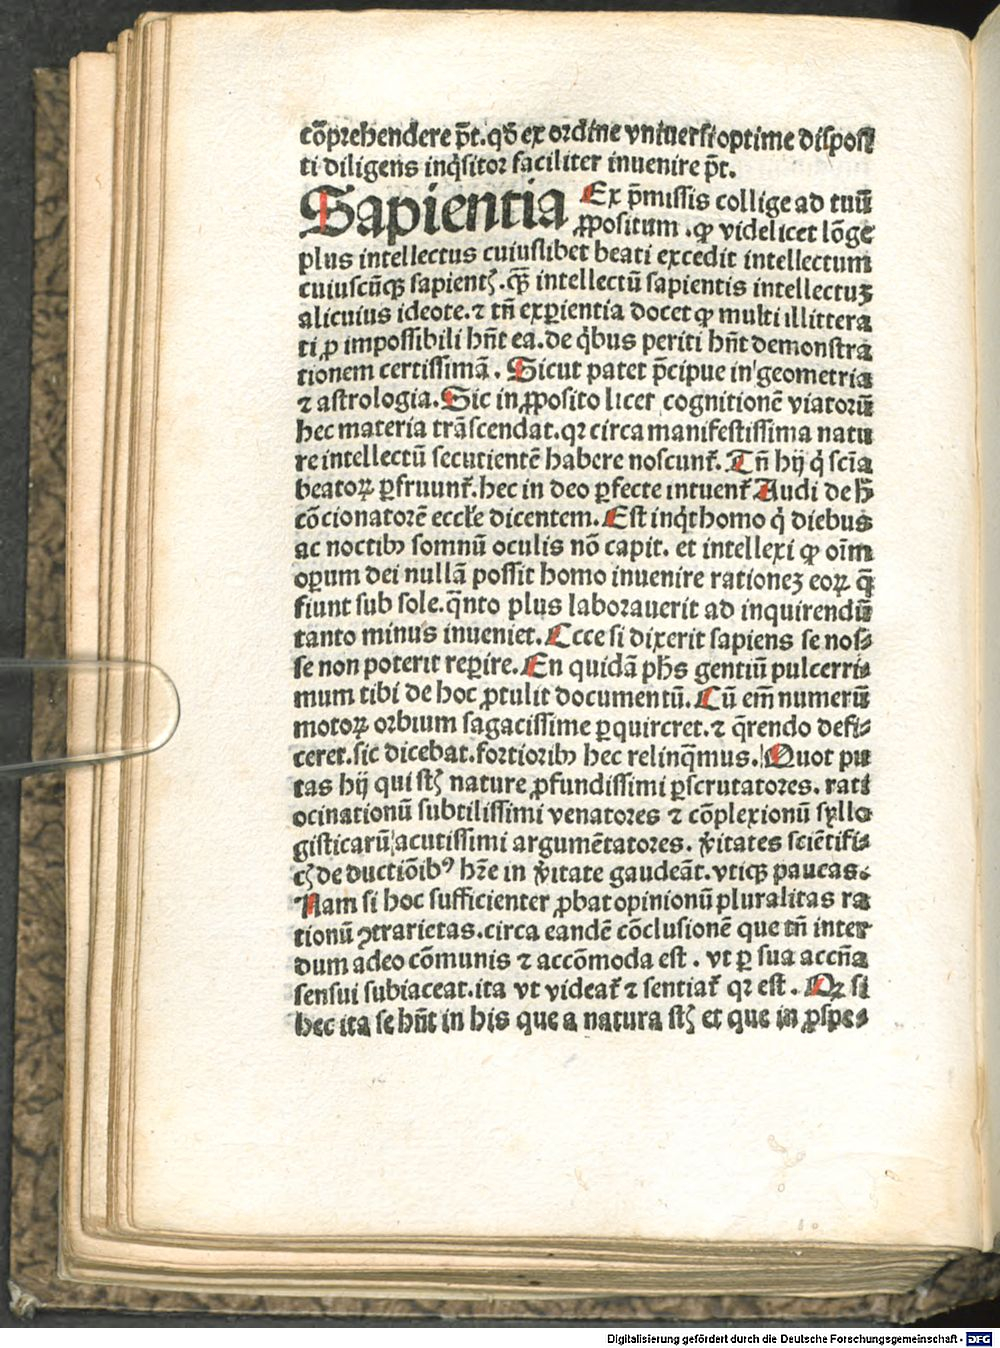 cōprehendere p̄t. qđ ex ordine vniuersi optime disposi
ti diligens inq̇sitor faciliter inuenire p̄t.
Sapientia Ex p̄missis collige ad tuū
ꝓpositum . ꝙ videlicet lōge
plus intellectus cuiuslibet beati excedit intellectum
cuiuscūqꝫ sapientꝭ. qꝫ̄ intellectū sapientis intellectuꝫ
alicuius ideote. ⁊ tn̄ exꝑientia docet ꝙ multi illittera
ti ꝓ impossibili hn̄t ea. de q̇bus periti hn̄t demonstra
tionem certissimā . Sicut patet p̄cipue in geometria
⁊ astrologia. Sic in ꝓposito licet cognitionē viatorū
hec materia trāscendat. qꝛ circa manifestissima natu
re intellectū secutientē habere noscunt᷑. Tn̄ hij q̇ scīa
beatoꝝ ꝑfruunt᷑. hec in deo ꝑfecte intuent᷑ Audi de h̄
cōcionatorē eccłe dicentem. Est inq̇t homo q̇ diebus
ac noctibꝫ somnū oculis nō capit. et intellexi ꝙ oīm
oꝑum dei nullā possit homo inuenire rationeꝫ eoꝝ q̄
fiunt sub sole. q̄nto plus laborauerit ad inquirendū
tanto minus inueniet. Ecce si dixerit sapiens se nos⸗
se non poterit reꝑire. En quidā ph̄s gentiū pulcerri⸗
mum tibi de hoc ꝓtulit documentū. Cū em̄ numerū
motoꝝ orbium sagacissime ꝑquireret. ⁊ q̄rendo defi⸗
ceret. sic dicebat. fortioribꝫ hec relinq̄mus. Quot pu
tas hij qui stꝭ nature ꝓfundissimi ꝑscrutatores. rati
ocinationū subtilissimi venatores ⁊ cōplexionū syllo
gisticarū acutissimi argumētatores. v̇itates sciētifi⸗
cꝭ deductiōibꝰ hr̄e in v̇itate gaudeāt. vtiqꝫ paucas.
Nam si hoc sufficienter ꝓbat opinionū pluralitas ra
tionū ꝯtrarietas. circa eandē cōclusionē que tn̄ inter
dum adeo cōmunis ⁊ accōmoda est . vt ꝑ sua accn̄a
sensui subiaceat. ita vt videat᷑ ⁊ sentiat᷑ qꝛ est . Qꝛ si
hec ita se hn̄t in his que a natura stꝭ et que in ꝓspe⸗
Digitalisierung gefördert durch die Deutsche Forschungsgemeinschaft - DFG